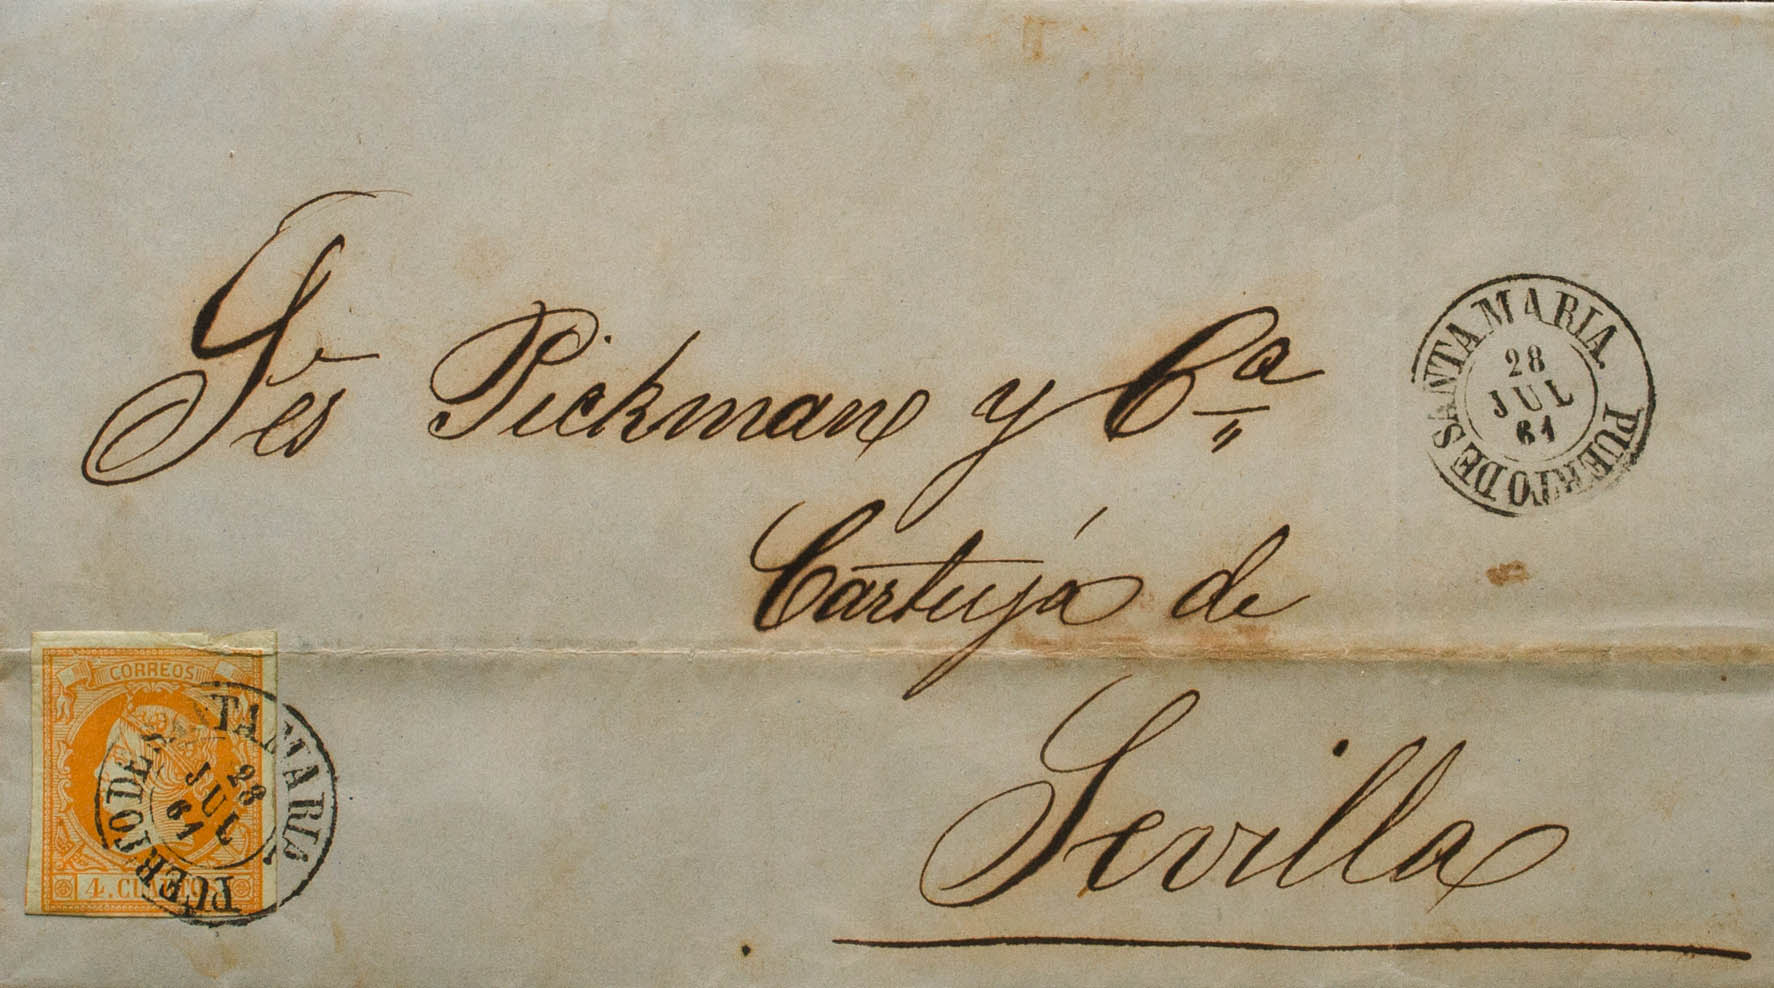 Sres Pickman y Cª
Cartuja de
Sevilla
PUERTO DE SANTA MARIA.
28
JUL
61
CORREOS
4. CUARTOS
PUERTO DE SANTA MARIA.
28
JUL
61